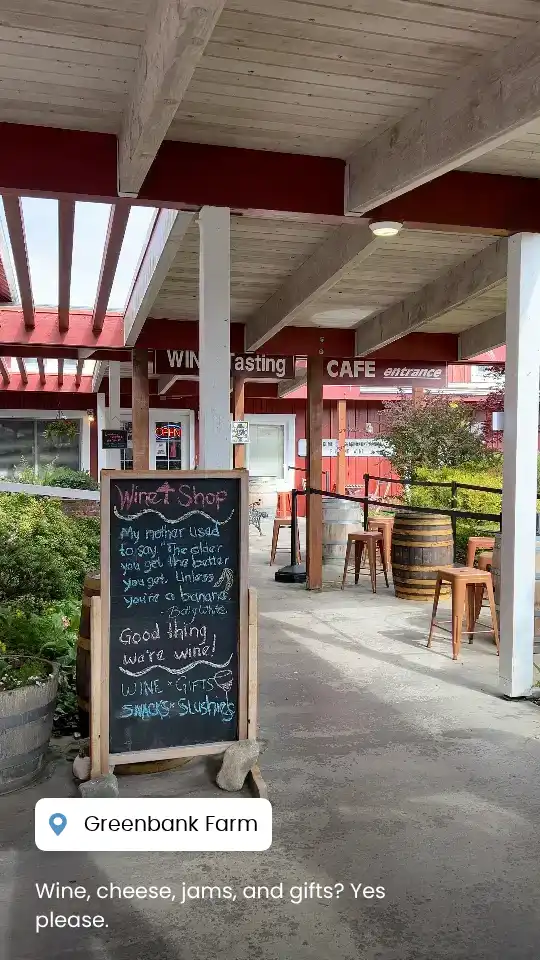 WINE Tasting
CAFE entrance
OPEN
Wine Shop
My mother used
to say. "The older
you get the better
you get. Unless
you're a banana.
- Betty White
Good thing
we're wine!
WINE * GIFTS
SNACKS * Slushies
Greenbank Farm
Wine, cheese, jams, and gifts? Yes
please.